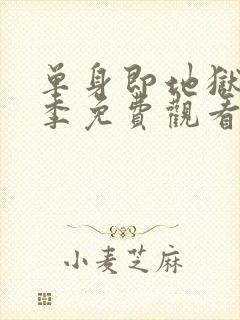 單身即地獄
季免費觀看
小麦芝麻